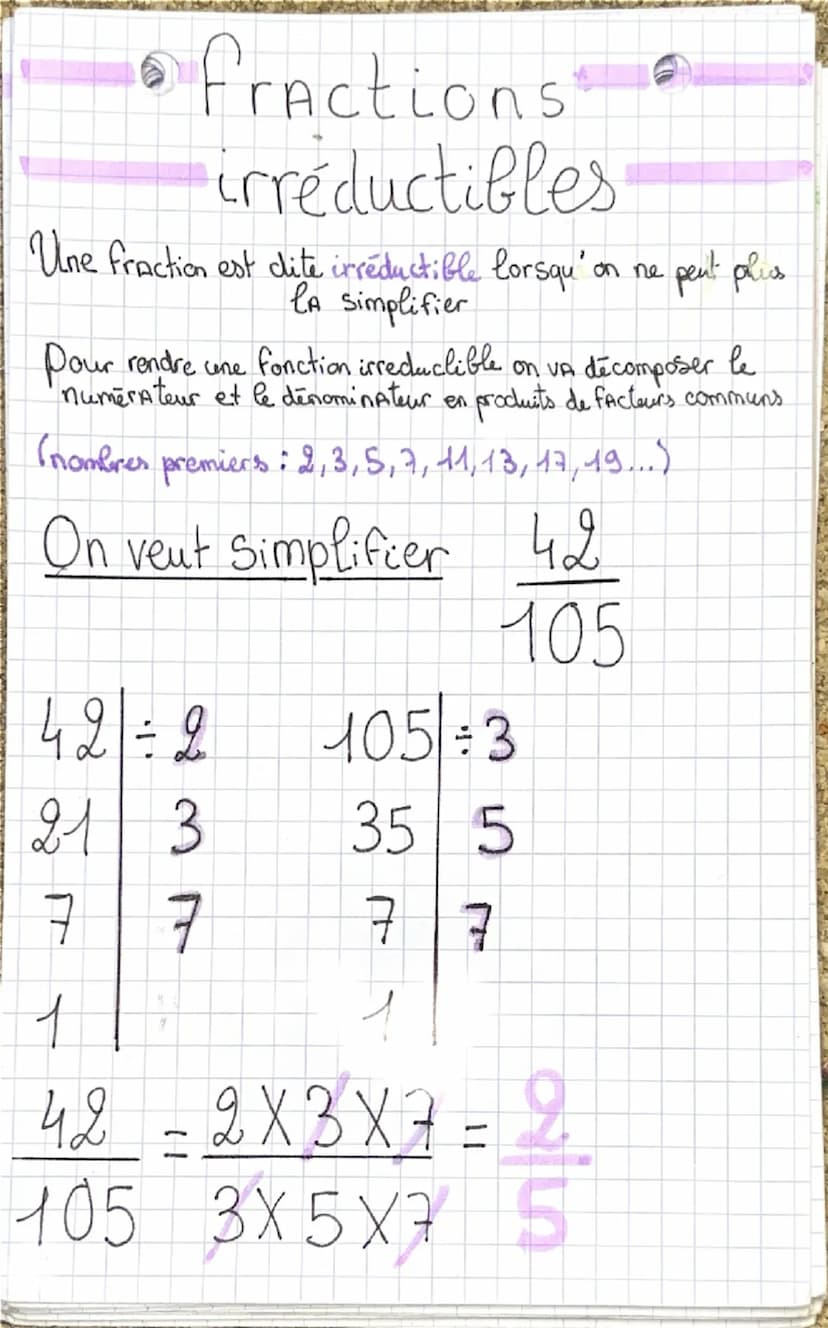 Fractions
irréductibles
Une fraction est dite irréductible lorsqu'on ne peut plus
la simplifier
Pour rendre une fonction irreductible on va décomposer le
numérateur et le dénominateur en produits de facteurs communs
(nombres premiers : 2, 3, 5, 7, 11, 13, 17, 19...)
On veut simplifier 42/105
42 | ÷ 2 105 | ÷ 3
21 | 3 35 | 5
7 | 7 7 | 7
1 | 1 |
42/105 = 2 X 3 X 7 / 3 X 5 X 7 = 2/5